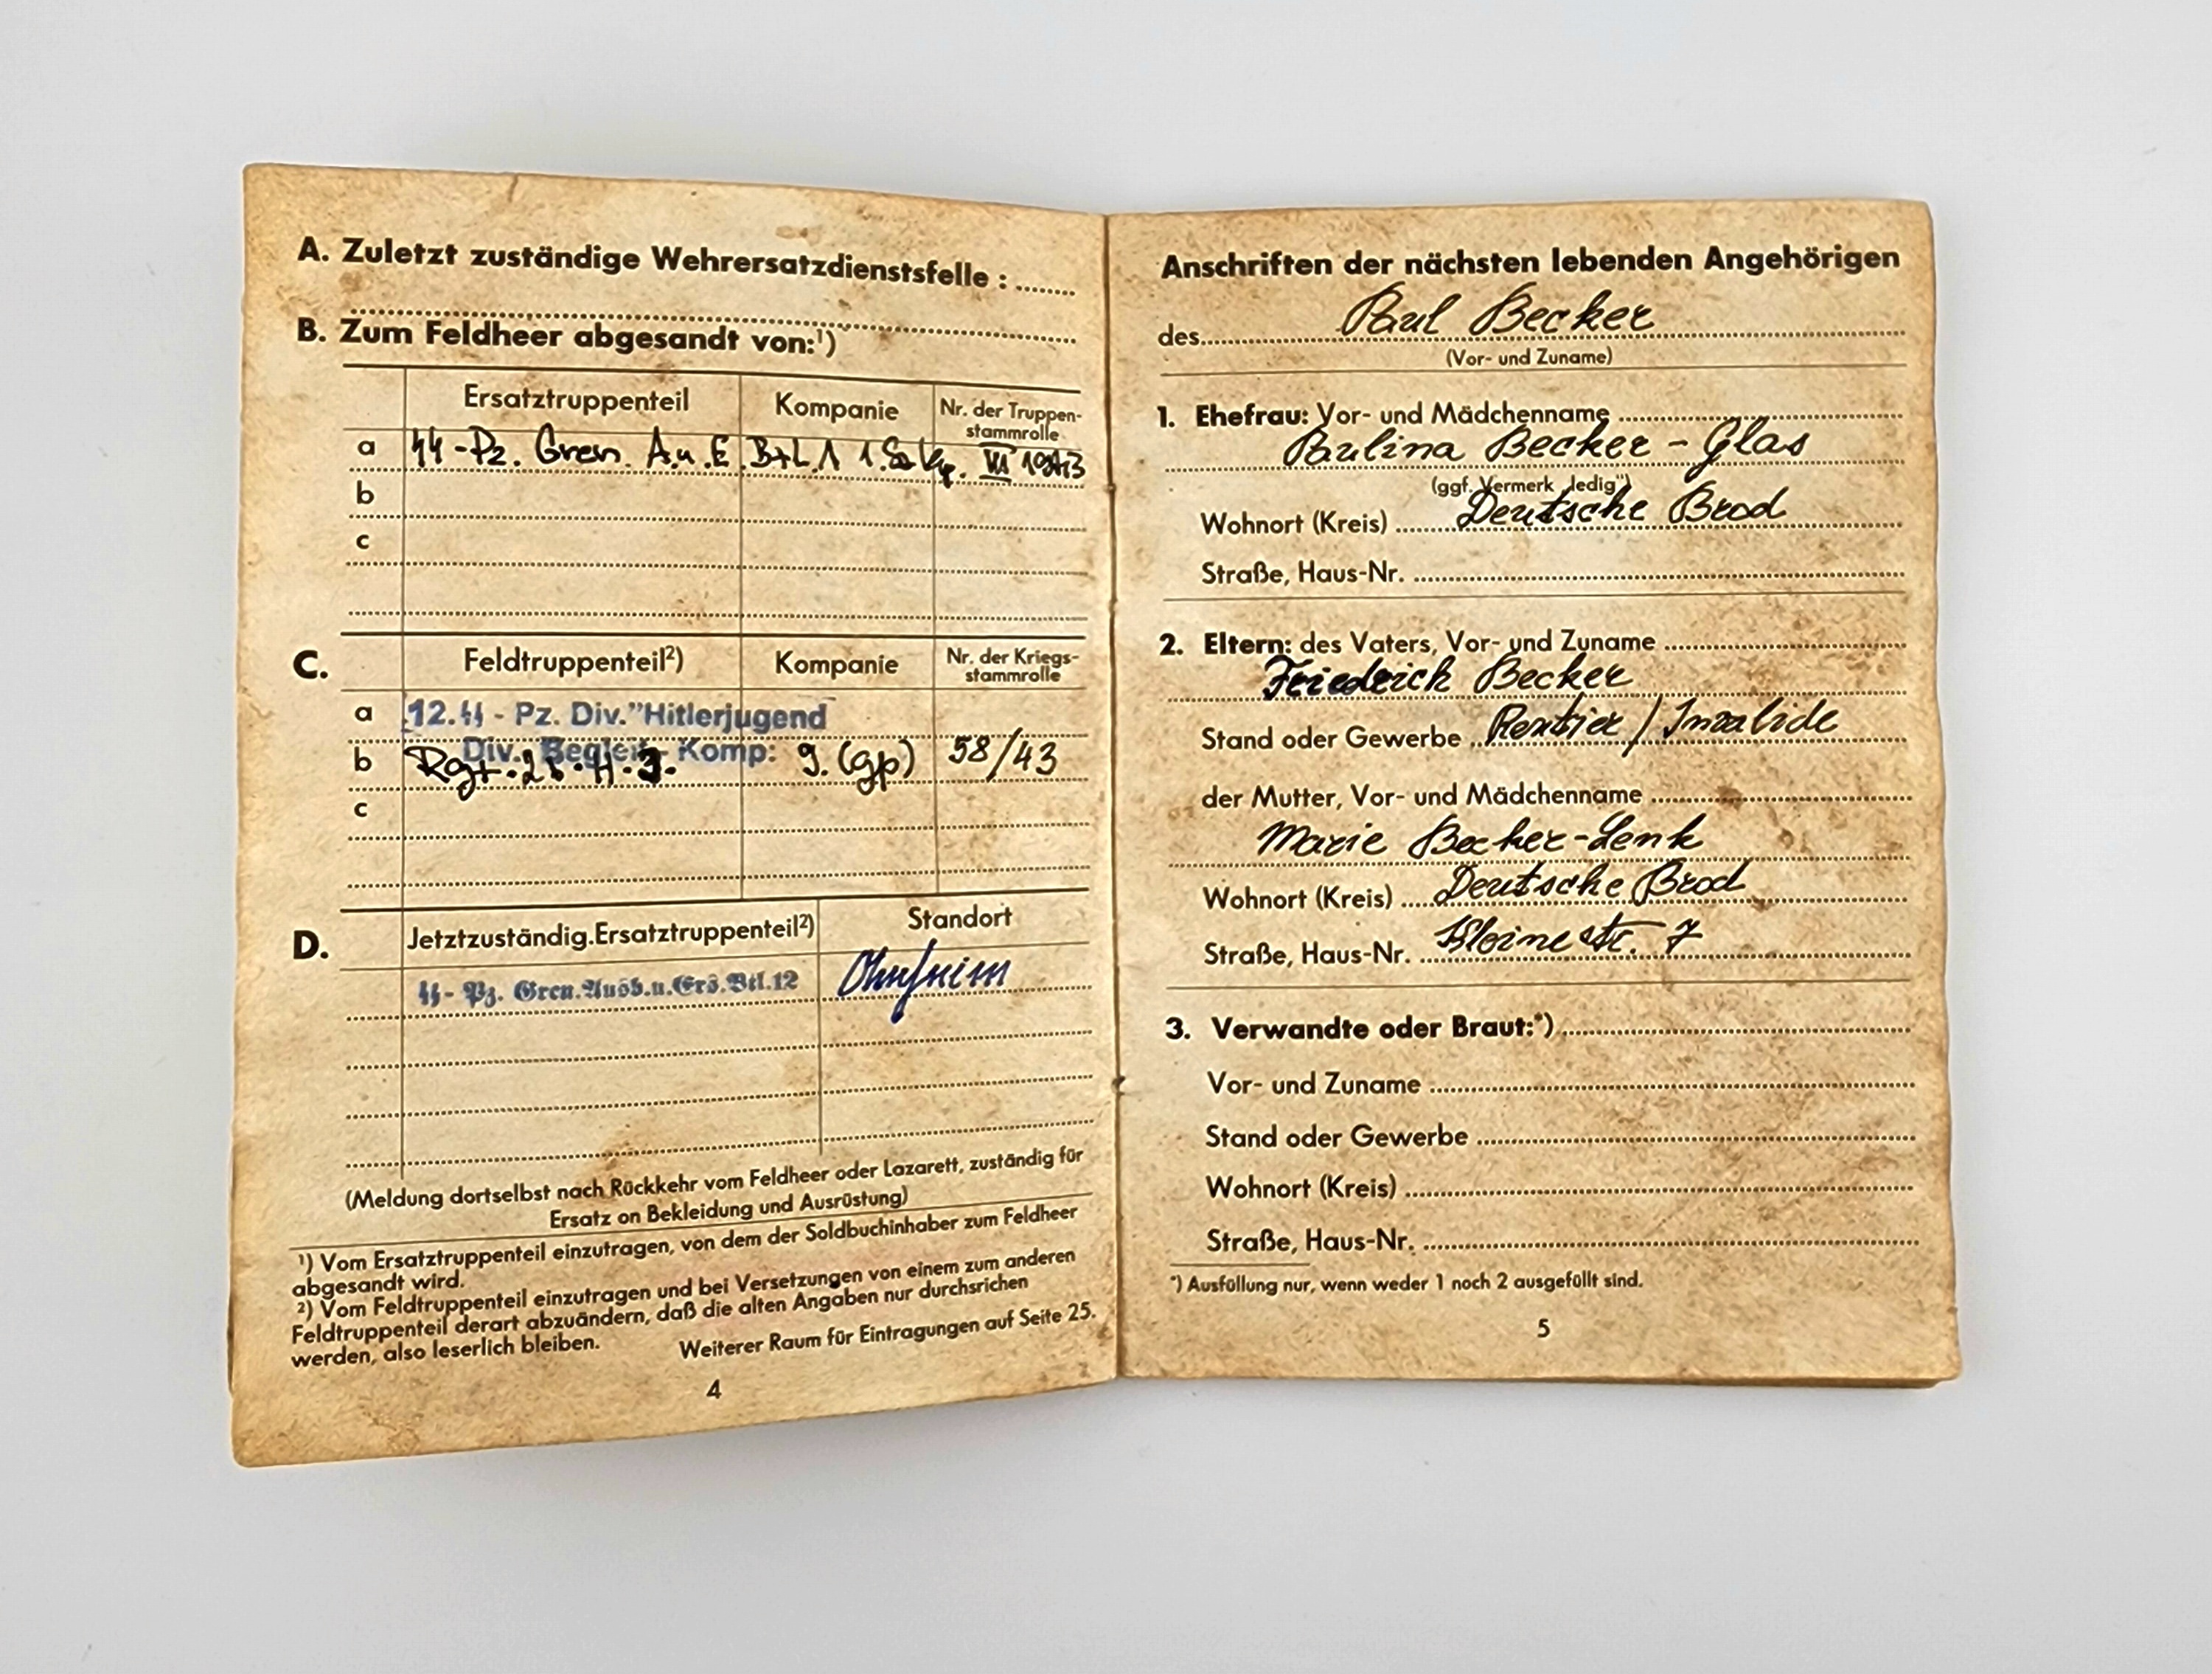 A. Zuletzt zuständige Wehrersatzdienstsfelle :
B. Zum Feldheer abgesandt von:¹)
Ersatztruppenteil Kompanie Nr. der Truppen-
stammrolle
a ϟϟ-Pz. Gren. A.u.E. Btl. 1 VII 1943
b
c
C. Feldtruppenteil²) Kompanie Nr. der Kriegs-
stammrolle
a 12.ϟϟ - Pz. Div."Hitlerjugend
Div. Begleit- Komp:
b Rgt. 9. (gp) 58/43
c
D. Jetztzuständig.Ersatztruppenteil²) Standort
ϟϟ- Pz. Gren.Ausb.u.Ers.Btl.12
(Meldung dortselbst nach Rückkehr vom Feldheer oder Lazarett, zuständig für
Ersatz on Bekleidung und Ausrüstung)
¹) Vom Ersatztruppenteil einzutragen, von dem der Soldbuchinhaber zum Feldheer
abgesandt wird.
²) Vom Feldtruppenteil einzutragen und bei Versetzungen von einem zum anderen
Feldtruppenteil derart abzuändern, daß die alten Angaben nur durchsrichen
werden, also leserlich bleiben. Weiterer Raum für Eintragungen auf Seite 25.
4
Anschriften der nächsten lebenden Angehörigen
des Paul Becker
(Vor- und Zuname)
1. Ehefrau: Vor- und Mädchenname
Paulina Becker - Glas
(ggf. Vermerk „ledig")
Wohnort (Kreis) Deutsche Brod
Straße, Haus-Nr.
2. Eltern: des Vaters, Vor- und Zuname
Friedrich Becker
Stand oder Gewerbe Rentier / Invalide
der Mutter, Vor- und Mädchenname
Marie Becker-Lenk
Wohnort (Kreis) Deutsche Brod
Straße, Haus-Nr. 7
3. Verwandte oder Braut:*)
Vor- und Zuname
Stand oder Gewerbe
Wohnort (Kreis)
Straße, Haus-Nr.
*) Ausfüllung nur, wenn weder 1 noch 2 ausgefüllt sind.
5